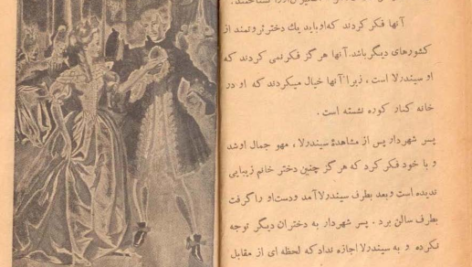 آنها فکر کردند که او باید یك دختر ثروتمند از
کشورهای دیگر باشد. آنها هر گز فکر نمی کردند که
او سیندرلا است ، زیرا آنها خیال میکردند که او در
خانه کنار کوره نشسته است .
پسر شهردار پس از مشاهدۀ سیندرلا، محو جمال او شد
و با خود فکر کرد که هر گز چنین دختر خانم زیبایی
ندیده است و بعد بطرف سیندرلا آمد و دست او را گرفت
بطرف سالن برد . پسر شهردار به دختران دیگر توجه
نکرده و به سیندرلا اجازه نداد که لحظه ای از مقابل